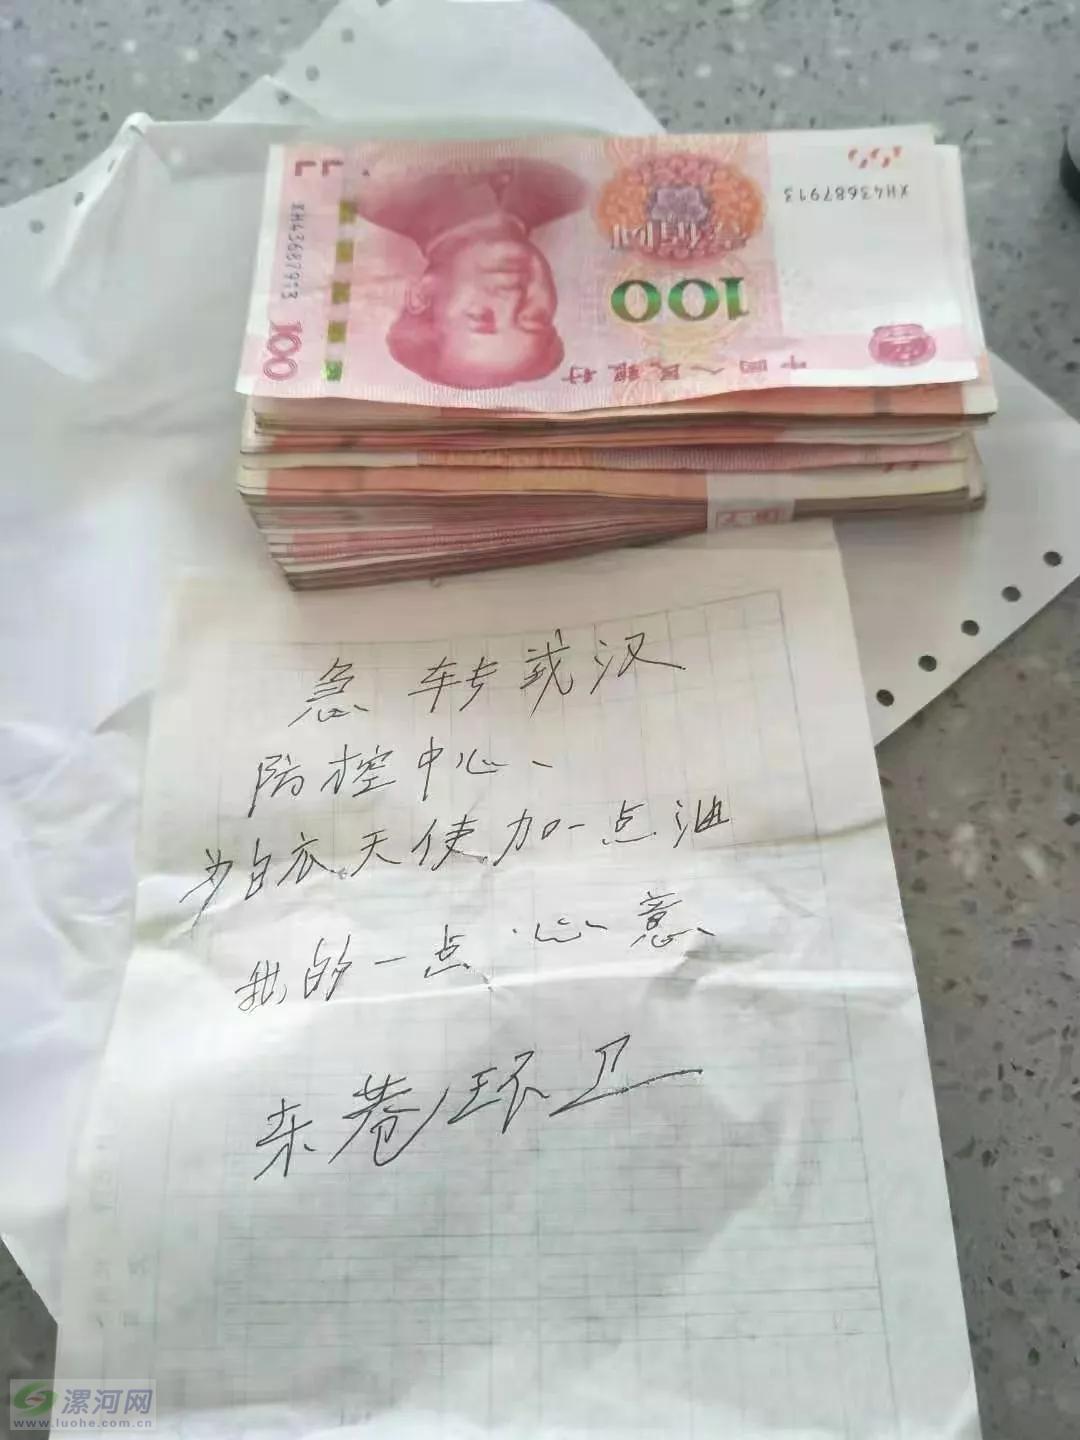 XH43687913
XH43687913
壹佰圆
100
100
中国人民银行
急 转武汉
防控中心、
为白衣天使加一点油
我的一点心意、
东巷环卫
漯河网
www.luohe.com.cn